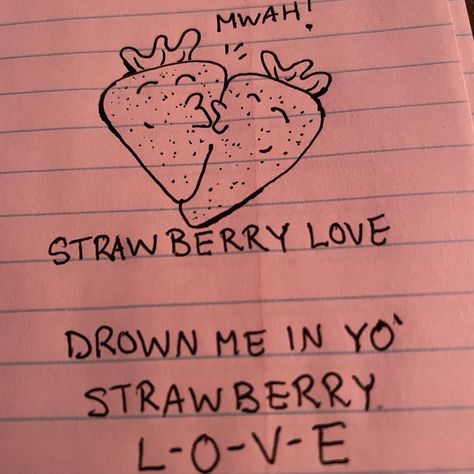 MWAH!
STRAWBERRY LOVE
DROWN ME IN YO'
STRAWBERRY
L-O-V-E